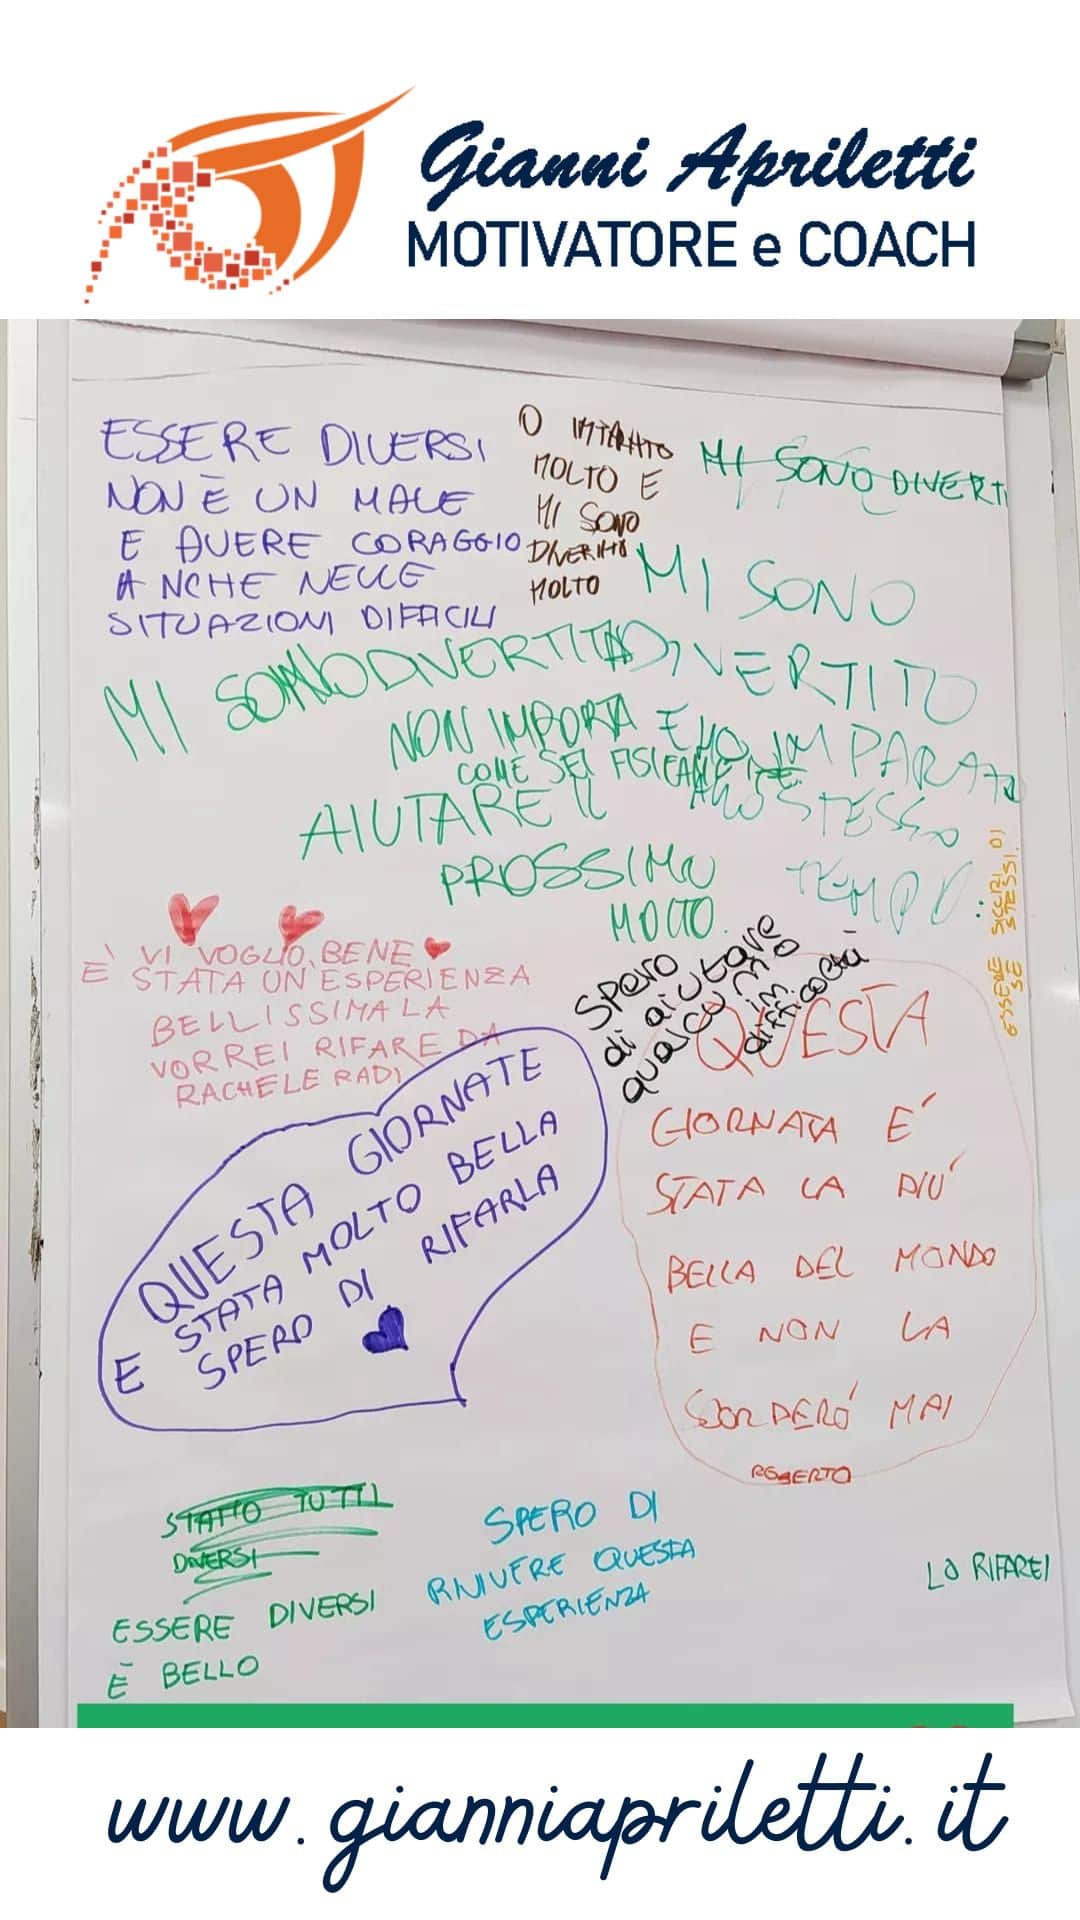 Gianni Apriletti
MOTIVATORE e COACH
ESSERE DIVERSI
NON È UN MALE
E AVERE CORAGGIO
ANCHE NELLE
SITUAZIONI DIFACILI
O IMPARATO
MOLTO E
MI SONO
DIVERTITO
MOLTO
MI SONO DIVERTI
MI SONO
DIVERTITO
E HO IMPARATO
ALLO STESSO
TEMPO
MI SONO DIVERTITA
NON IMPORTA
COME SEI FISICAMENTE
AIUTARE IL
PROSSIMO
MOLTO
ESSERE SICURI DI
SE STESSI.
VI VOGLIO BENE
È STATA UN'ESPERIENZA
BELLISSIMA LA
VORREI RIFARE DA
RACHELE RADI
spero
di aiutare
qualcuno
in
difficoltà
QUESTA GIORNATE
E STATA MOLTO BELLA
SPERO DI RIFARLA
QUESTA
GIORNATA E´
STATA LA PIÚ
BELLA DEL MONDO
E NON LA
SCORDERÓ MAI
ROBERTO
TUTTI
DIVERSI
ESSERE DIVERSI
È BELLO
SPERO DI
RIVIVERE QUESTA
ESPERIENZA
LO RIFAREI
www.gianniapriletti.it